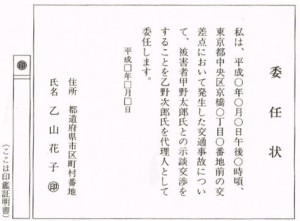 委任状
私は、平成〇年〇月〇日午後〇時頃、
東京都中央区京橋〇丁目〇番地前の交
差点において発生した交通事故につい
て、被害者甲野太郎氏との示談交渉を
することを乙野次郎氏を代理人として
委任します。
平成〇年〇月〇日
住所 都道府県市区町村番地
氏名 乙山花子 ㊞
㊞
(ここは印鑑証明書)